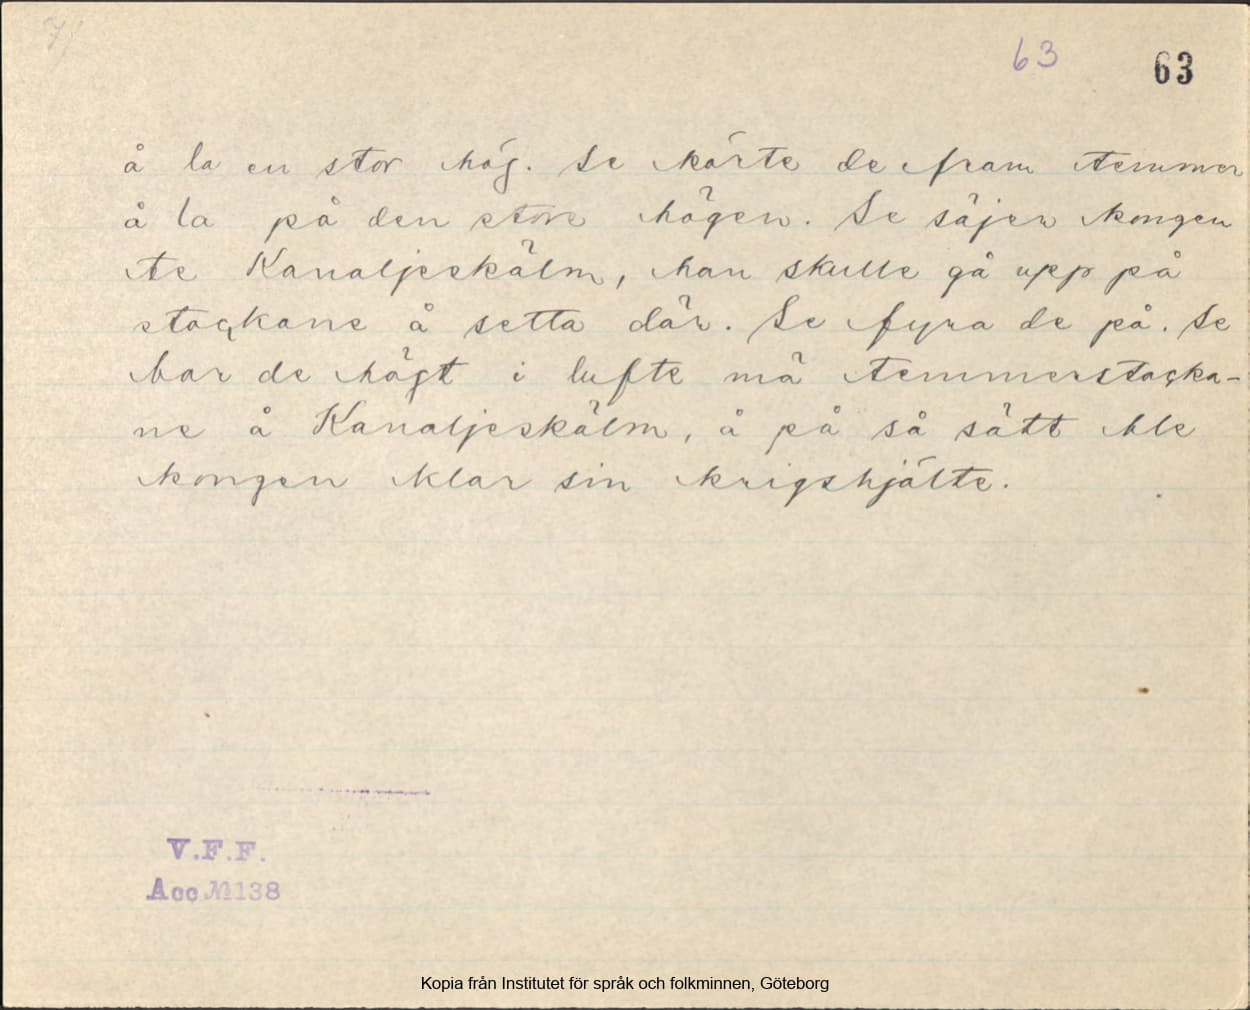 63 63
å la en stor hög. Se körte de fram temmer
å la på den store högen. Se säjer kongen
te Kanaljeskälm, han skulle gå upp på
stockane å setta där. Se fyra de på. Se
bar de högt i lufte mä temmerstocka-
ne å Kanaljeskälm, å på så sätt ble
kongen klar sin krigshjälte.
V.F.F.
Acc № 138
Kopia från Institutet för språk och folkminnen, Göteborg